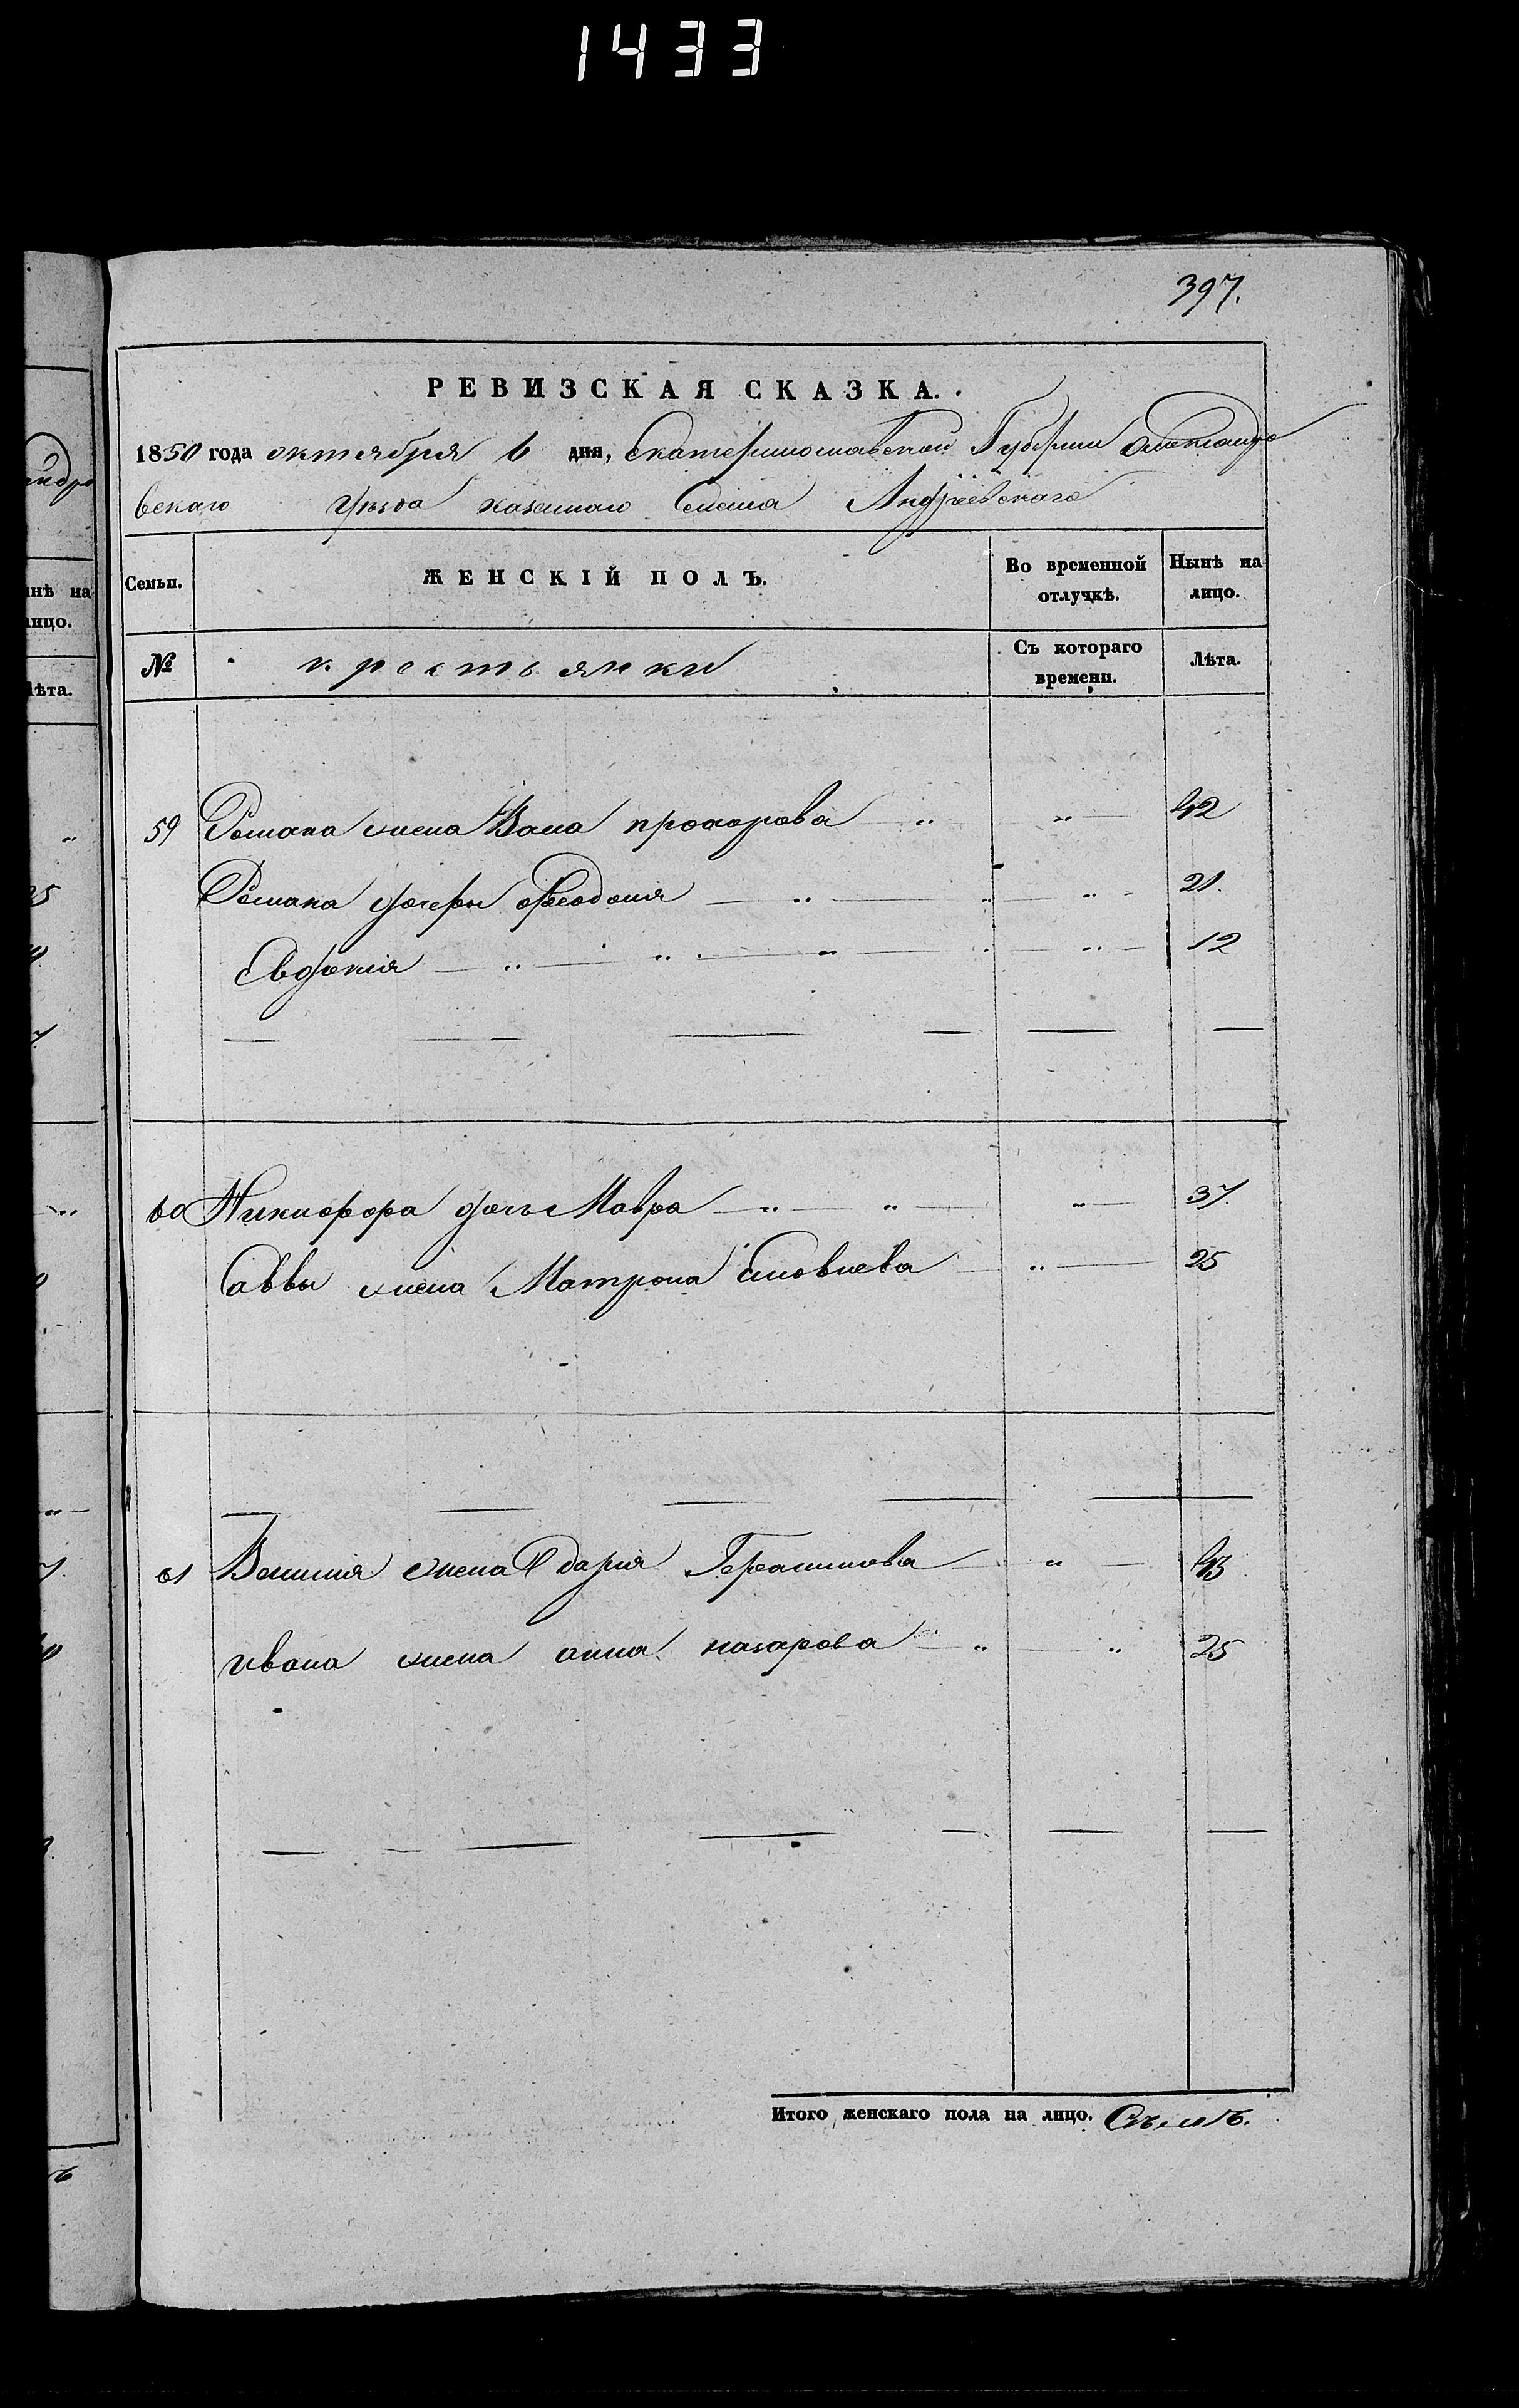 1433
397.
РЕВИЗСКАЯ СКАЗКА.
1850 года октября 6 дня, Екатеринославской Губернии Александро
вскаго Уѣзда казеннаго Селения Андреевскаго
Семьи. ЖЕНСКІЙ ПОЛЪ. Во временной отлучкѣ. Нынѣ на лицо.
№ крестьянки Съ котораго времени. Лѣта.
59 Романа жена Васа прохорова „ „ 42
Романа дочери Феодосия „ „ „ 21.
Евдокия „ „ „ „ „ 12
60 Никифора дочь Мавра „ „ „ 37.
Саввы жена Матрона Яковлева „ 25
61 жена дария Герасимова „ 43
ивана жена анна назарова „ „ 25
Итого женскаго пола на лицо. Сѣмь.
ндро
нѣ на
лицо.
Лѣта.